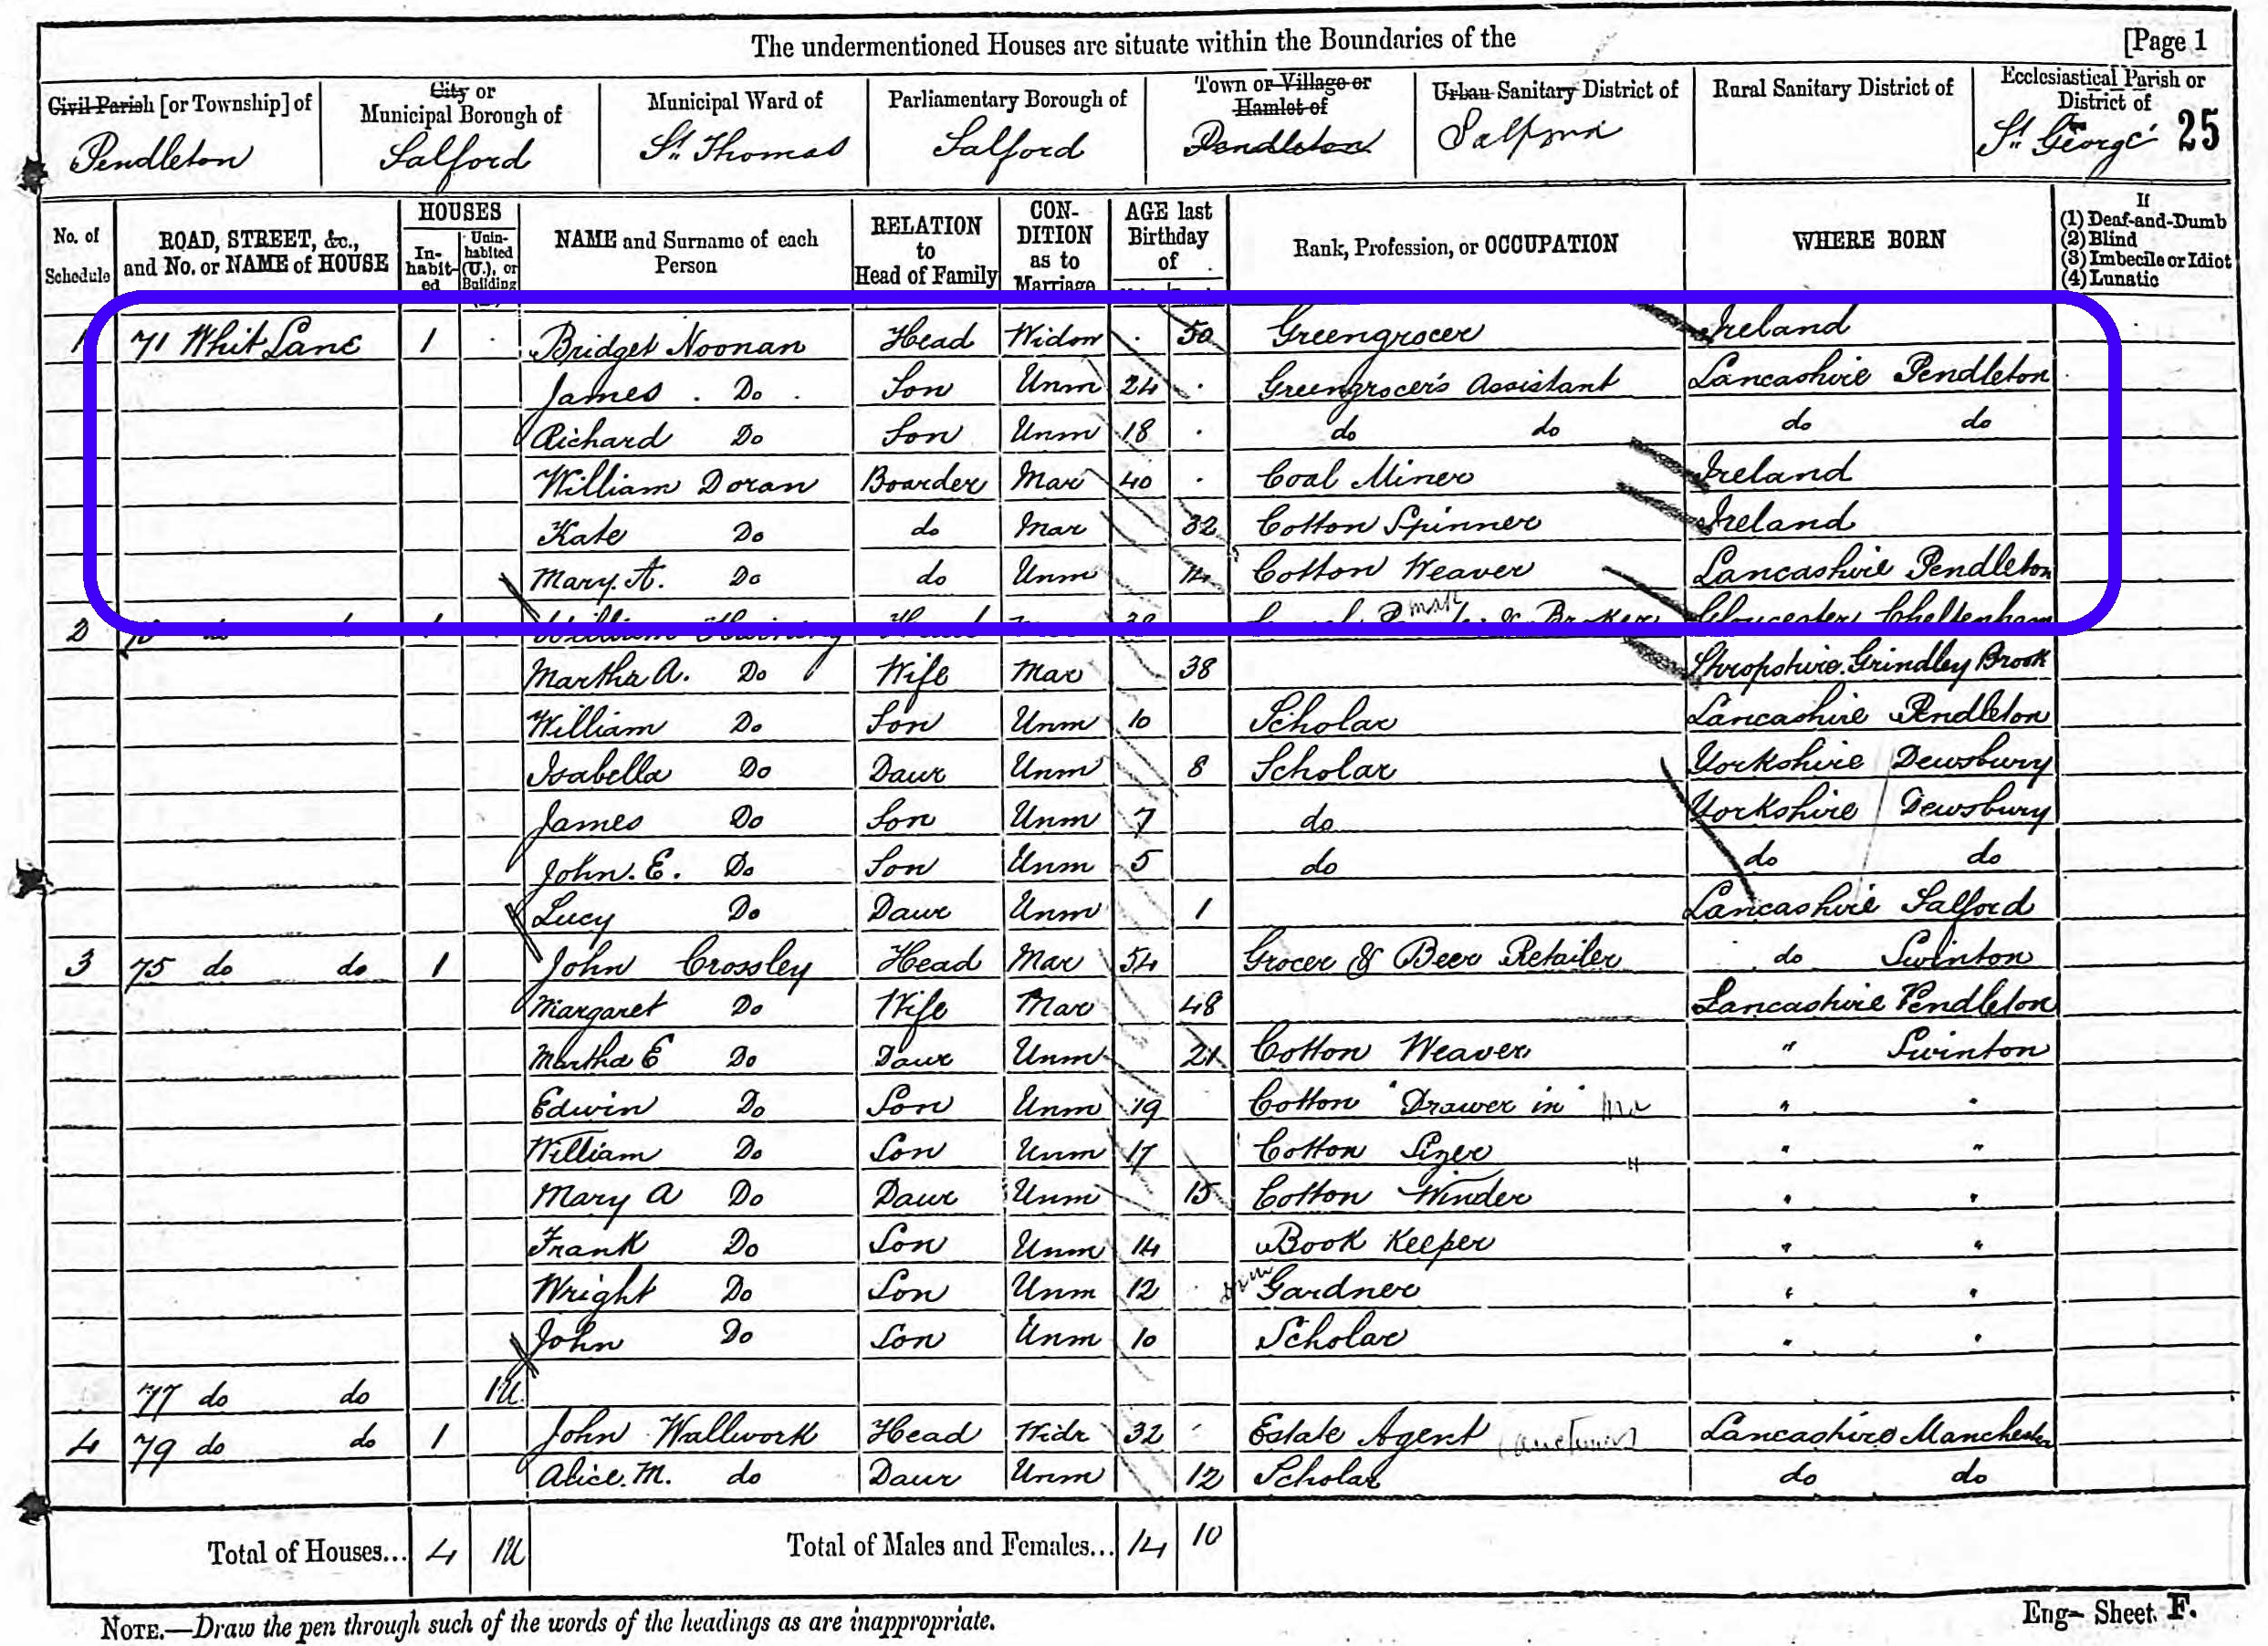 The undermentioned Houses are situate within the Boundaries of the [Page 1
Civil Parish [or Township] of City or Municipal Borough of Municipal Ward of Parliamentary Borough of Town or Village or Hamlet of Urban Sanitary District of Rural Sanitary District of Ecclesiastical Parish or District of
Pendleton Salford St. Thomas Salford Pendleton Salford St. George 25
No. of Schedule ROAD, STREET, &c., and No. or NAME of HOUSE HOUSES In-habit-ed Unin-habited (U.), or Building NAME and Surname of each Person RELATION to Head of Family CON-DITION as to Marriage AGE last Birthday of Rank, Profession, or OCCUPATION WHERE BORN If (1) Deaf-and-Dumb (2) Blind (3) Imbecile or Idiot (4) Lunatic
1 71 Whit Lane 1 Bridget Noonan Head Widow 50 Greengrocer Ireland
James Do Son Unm 24 Greengrocer's Assistant Lancashire Pendleton
Richard Do Son Unm 18 do do do do
William Doran Boarder Mar 40 Coal Miner Ireland
Kate Do do Mar 32 Cotton Spinner Ireland
Mary. A. Do do Unm 14 Cotton Weaver Lancashire Pendleton
2 do 1 William Head & Broker Gloucester Cheltenham
Martha A. Do Wife Mar 38 Shropshire. Grindley Brook
William Do Son Unm 10 Scholar Lancashire Pendleton
Isabella Do Daur Unm 8 Scholar Yorkshire Dewsbury
James Do Son Unm 7 do Yorkshire Dewsbury
John. E. Do Son Unm 5 do do do
Lucy Do Daur Unm 1 Lancashire Salford
3 75 do do 1 John Crossley Head Mar 54 Grocer & Beer Retailer do Swinton
Margaret Do Wife Mar 48 Lancashire Pendleton
Martha E Do Daur Unm 21 Cotton Weaver " Swinton
Edwin Do Son Unm 19 Cotton "Drawer in" " "
William Do Son Unm 17 Cotton Sizer " "
Mary A Do Daur Unm 15 Cotton Winder " "
Frank Do Son Unm 14 Book Keeper " "
Wright Do Son Unm 12 Gardner " "
John Do Son Unm 10 Scholar " "
77 do do 1U
4 79 do do 1 John Wallwork Head Widr 32 Estate Agent Lancashire Manchester
Alice. M. do Daur Unm 12 Scholar do do
Total of Houses... 4 1U Total of Males and Females... 14 10
NOTE.—Draw the pen through such of the words of the headings as are inappropriate. Eng— Sheet. F.